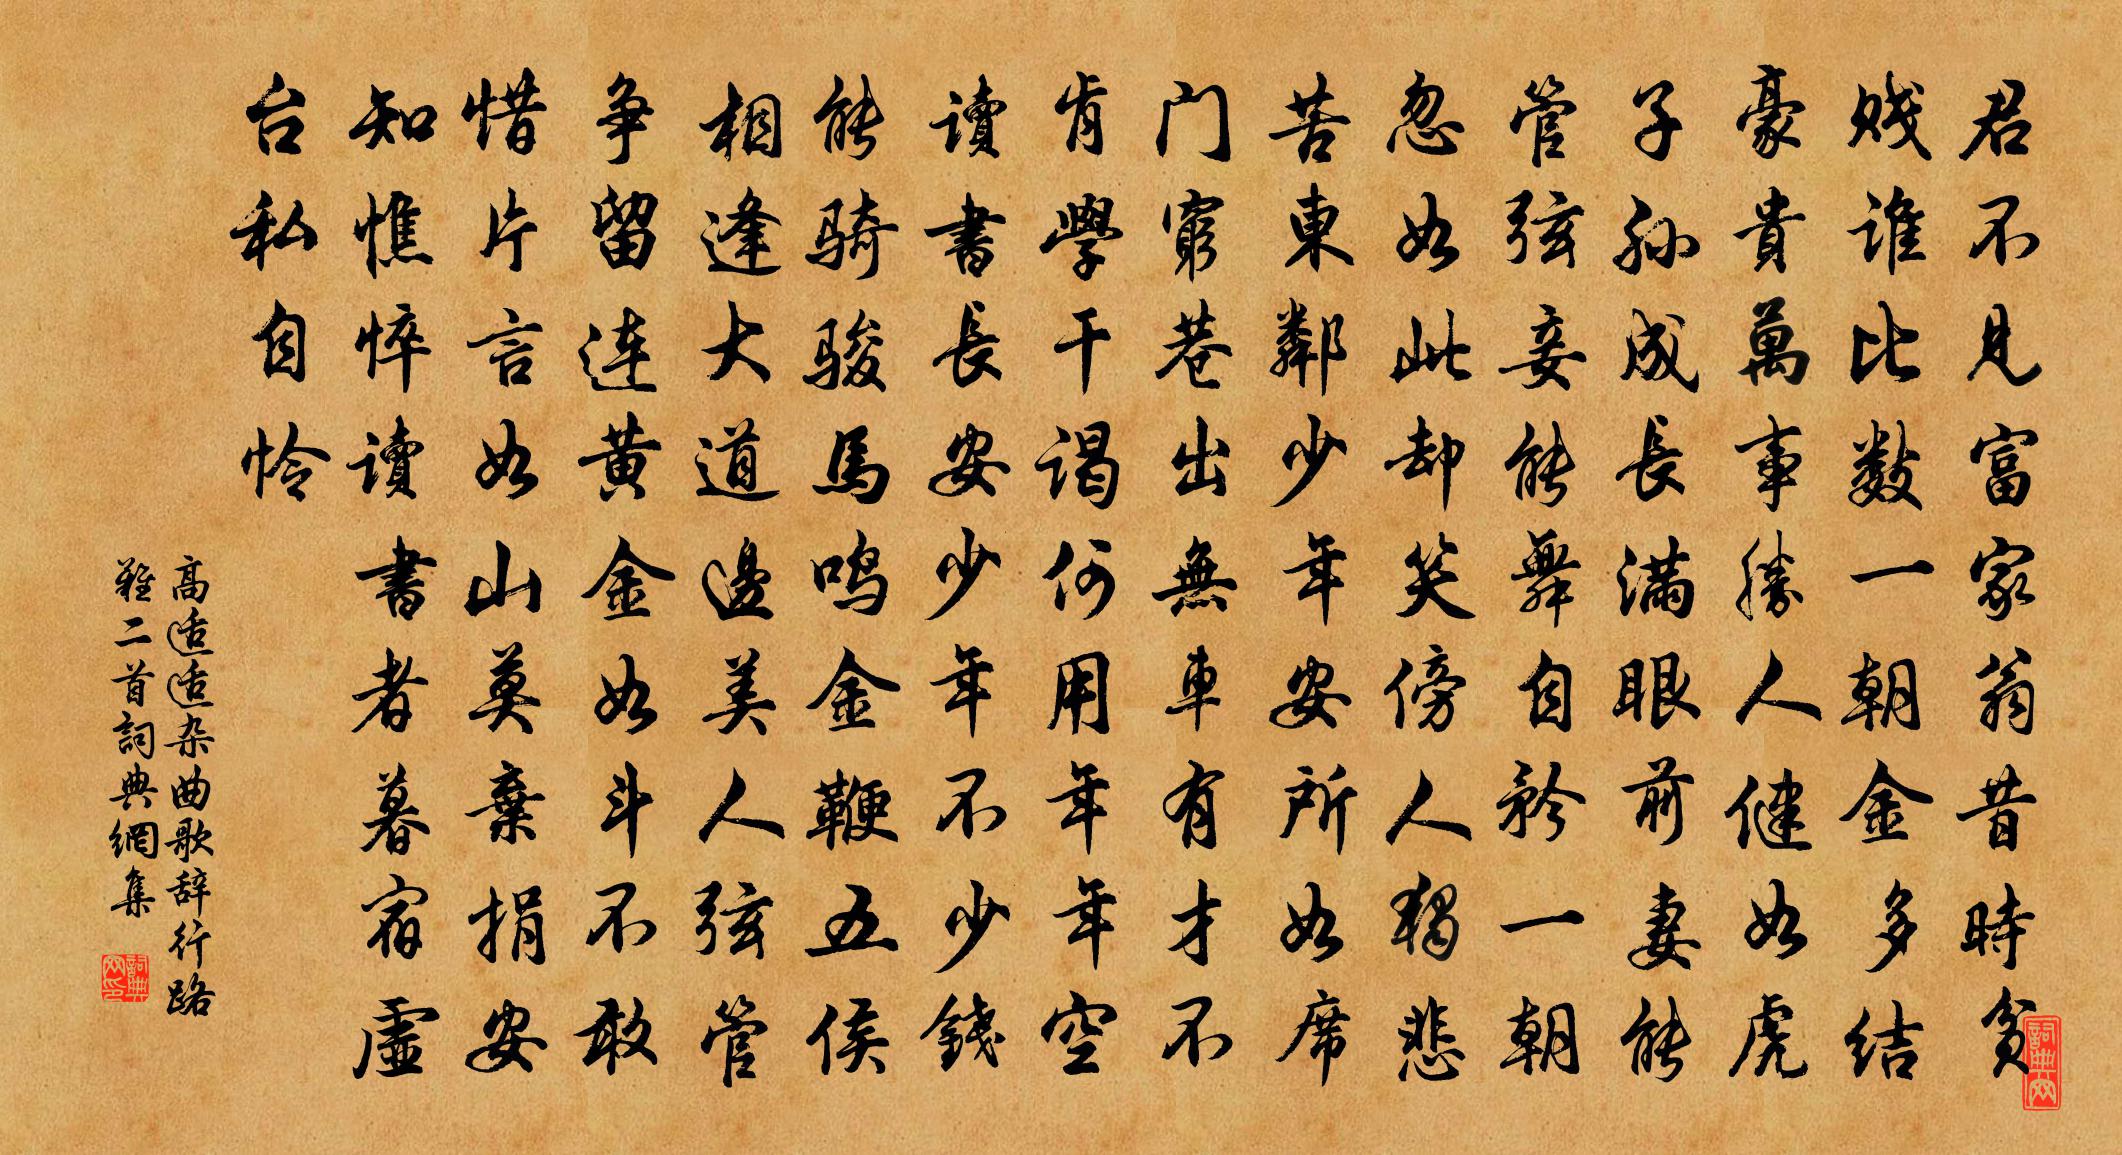 君不見富家翁昔時貧
贱谁比数一朝金多结
豪貴萬事勝人健如虎
子孙成長满眼前妻能
管弦妾能舞自矜一朝
忽如此却笑傍人獨悲
苦東鄰少年安所如席
门窮巷出無車有才不
肯學干谒何用年年空
讀書長安少年不少錢
能骑骏馬鸣金鞭五侯
相逢大道邊美人弦管
争留连黄金如斗不敢
惜片言如山莫棄捐安
知憔悴讀書者暮宿虛
台私自怜
高适适杂曲歌辞行路
難二首詞典網集
詞典网印
詞典网